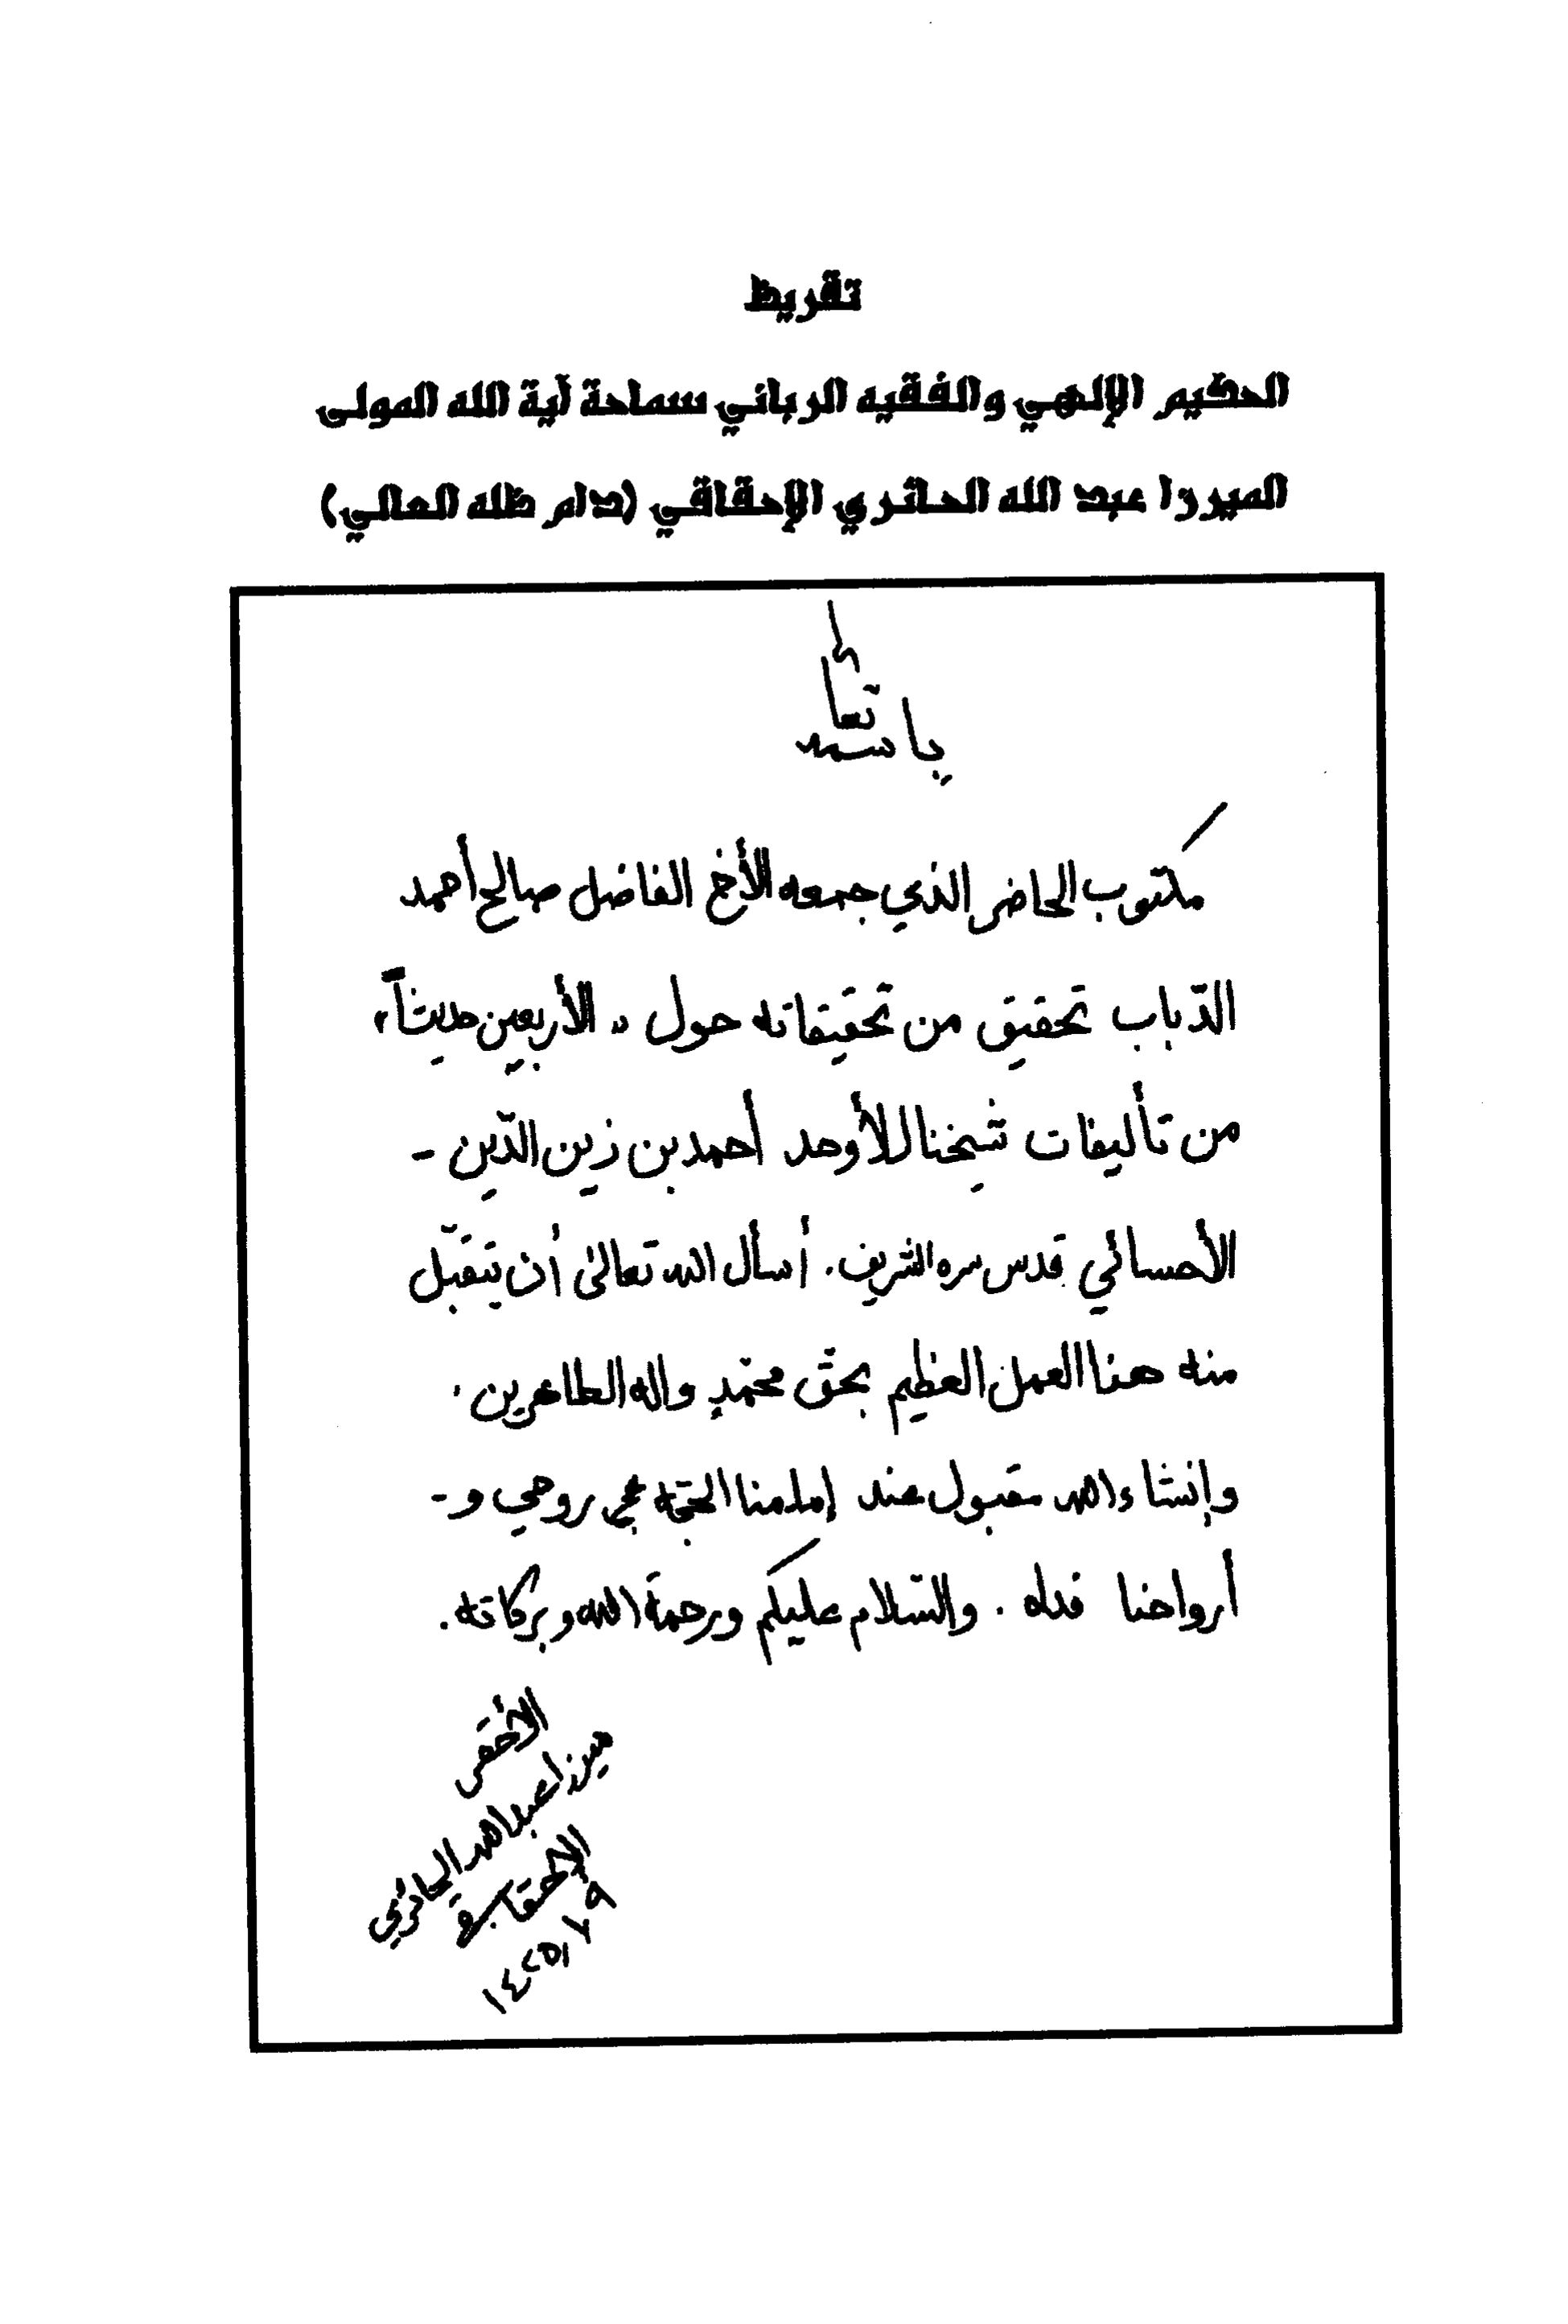 تقريظ
الحكيم الإلهي والفقيه الرباني سماحة آية الله المولى
الميرزا عبد الله الحائري الإحقاقي (دام ظله العالي)
باسمه تعالى
مكتوب الحاضر الذي جمعه الأخ الفاضل صالح أحمد
الدّباب تحقيق من تحقيقاته حول « الأربعين حديثاً »
من تأليفات شيخنا الأوحد أحمد بن زين الدّين -
الأحسائي قدس سره الشريف. أسأل الله تعالى أن يتقبّل
منه هذا العمل العظيم بحقّ محمّدٍ واله الطاهرين.
وإنشاء الله مقبول عند إمامنا الحجّة عج روحي و-
أرواحنا فداه . والسّلام عليكم ورحمة الله وبركاته.
الأحقر
ميرزا عبدالله الحائري
الإحقاقي